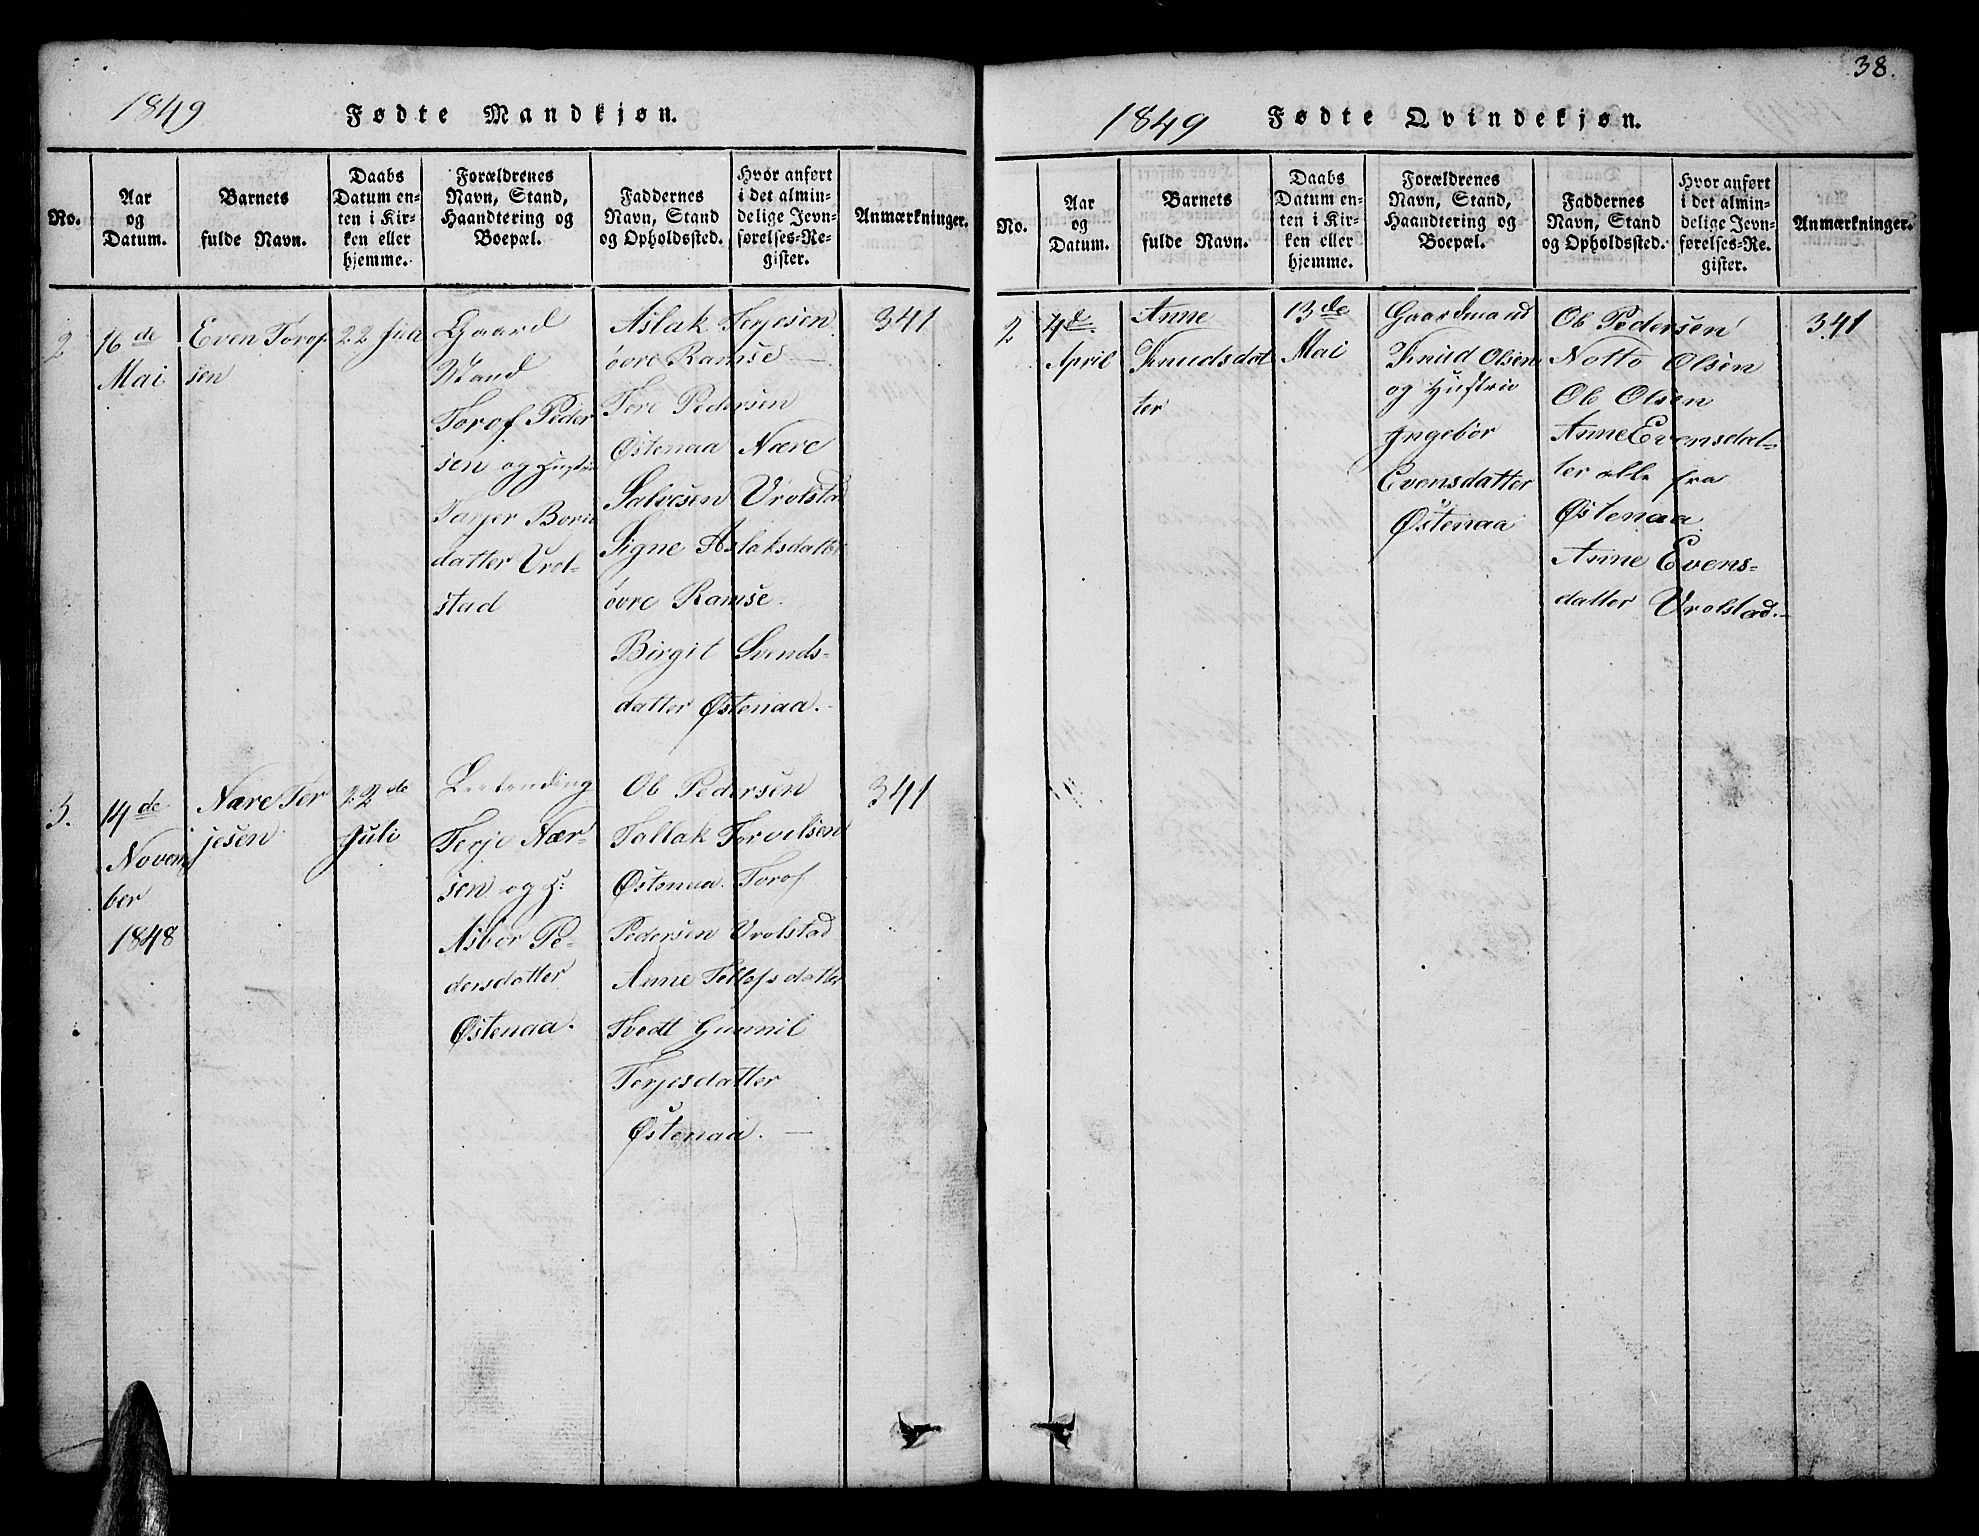 38.
1849
Fødte Mandkjøn.
No.
Aar
og
Datum.
Barnets
fulde Navn.
Daabs
Datum en-
ten i Kir-
ken eller
hjemme.
Forældrenes
Navn, Stand,
Haandtering og
Boepæl.
Faddernes
Navn, Stand
og Opholdssted.
Hvor anført
i det almin-
delige Jevn-
førelses-Re-
gister.
Anmærkninger.
2
16de
Mai
Even Torof
sen
22
Gaard
Mand
Torof Peder
sen og
Tarjer
datter Vrol-
stad
Aslak Terjesen
øvre Ramse
Tore Pedersen
Østenaa Nære
Salvesen Vrolstad
Signe Aslaksdatter
øvre Ramse.
Birgit Svends-
datter Østenaa.
341
3.
14de
Novem
ber
1848
Nære Ter
jesen
22de
Juli
Terje Nær-
sen og H:
Asbør Pe-
dersdatter
Østenaa.
Ole Pedersen
Tallak Torvilsen
Østenaa. Torof
Pedersen Vrolstad
Anne Tellefsdatter
Tvedt Gunnil
Terjesdatter
Østenaa.
341
1849
Fødte Qvindekjøn.
No.
Aar
og
Datum.
Barnets
fulde Navn.
Daabs
Datum en-
ten i Kir-
ken eller
hjemme.
Forældrenes
Navn, Stand,
Haandtering og
Boepæl.
Faddernes
Navn, Stand
og Opholdssted.
Hvor anført
i det almin-
delige Jevn-
førelses-Re-
gister.
Anmærkninger.
2
4d
April
Anne
Knudsdat
ter
13de
Mai
Gaardmand
Knud Olsen
og Hustrue
Ingebor
Evensdatter
Østenaa
Ole Pedersen
Notto Olsen
Ole Olsen
Anne Evensdat-
ter alle fra
Østenaa
Anne Evens-
datter Vrolstad.
341